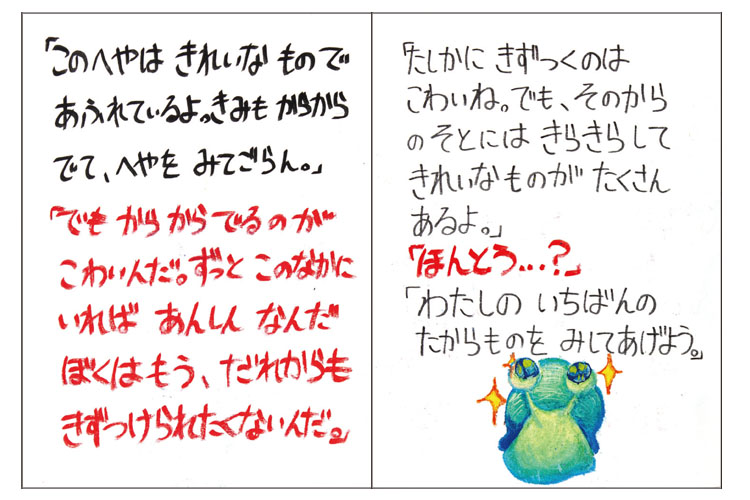 「このへやは きれいな もので
あふれているよ。きみも からから
でて、へやを みてごらん。」
「でも からからでるのが
こわいんだ。ずっと このなかに
いれば あんしん なんだ
ぼくはもう、だれからも
きずつけられたくないんだ。」
「たしかに きずつくのは
こわいね。でも、そのから
のそとには きらきらして
きれいなものが たくさん
あるよ。」
「ほんとう...?」
「わたしの いちばんの
たからものを みしてあげよう。」